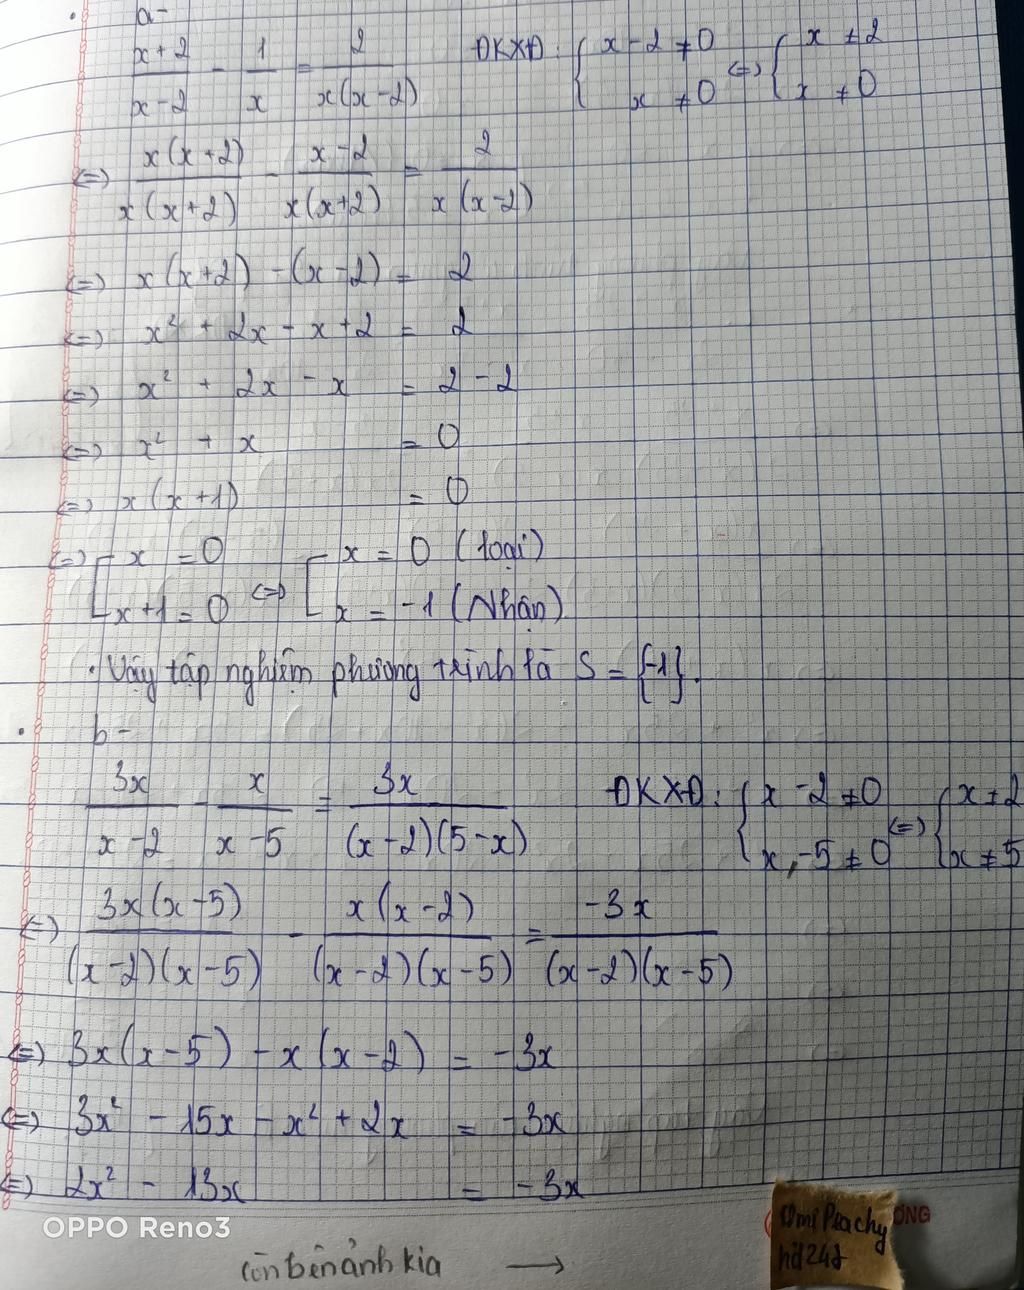 a-
x+2/x-2 - 1/x = 2/x(x-2) ĐKXĐ: { x-2 ≠ 0 x ≠ 0 <=> { x ≠ 2 x ≠ 0
<=> x(x+2)/x(x+2) - x-2/x(x+2) = 2/x(x-2)
<=> x(x+2) - (x-2) = 2
<=> x² + 2x - x + 2 = 2
<=> x² + 2x - x = 2 - 2
<=> x² + x = 0
<=> x(x+1) = 0
<=> [ x = 0 x+1 = 0 <=> [ x = 0 (loại) x = -1 (Nhận)
. Vậy tập nghiệm phương trình là S = {-1}.
b-
3x/x-2 - x/x-5 = 3x/(x-2)(5-x) ĐKXĐ: { x-2 ≠ 0 x-5 ≠ 0 <=> { x ≠ 2 x ≠ 5
<=> 3x(x-5)/(x-2)(x-5) - x(x-2)/(x-2)(x-5) = -3x/(x-2)(x-5)
<=> 3x(x-5) - x(x-2) = -3x
<=> 3x² - 15x - x² + 2x = -3x
<=> 2x² - 13x = -3x
OPPO Reno3
còn bên ảnh kia →
Peachy
hd24h
ƠNG